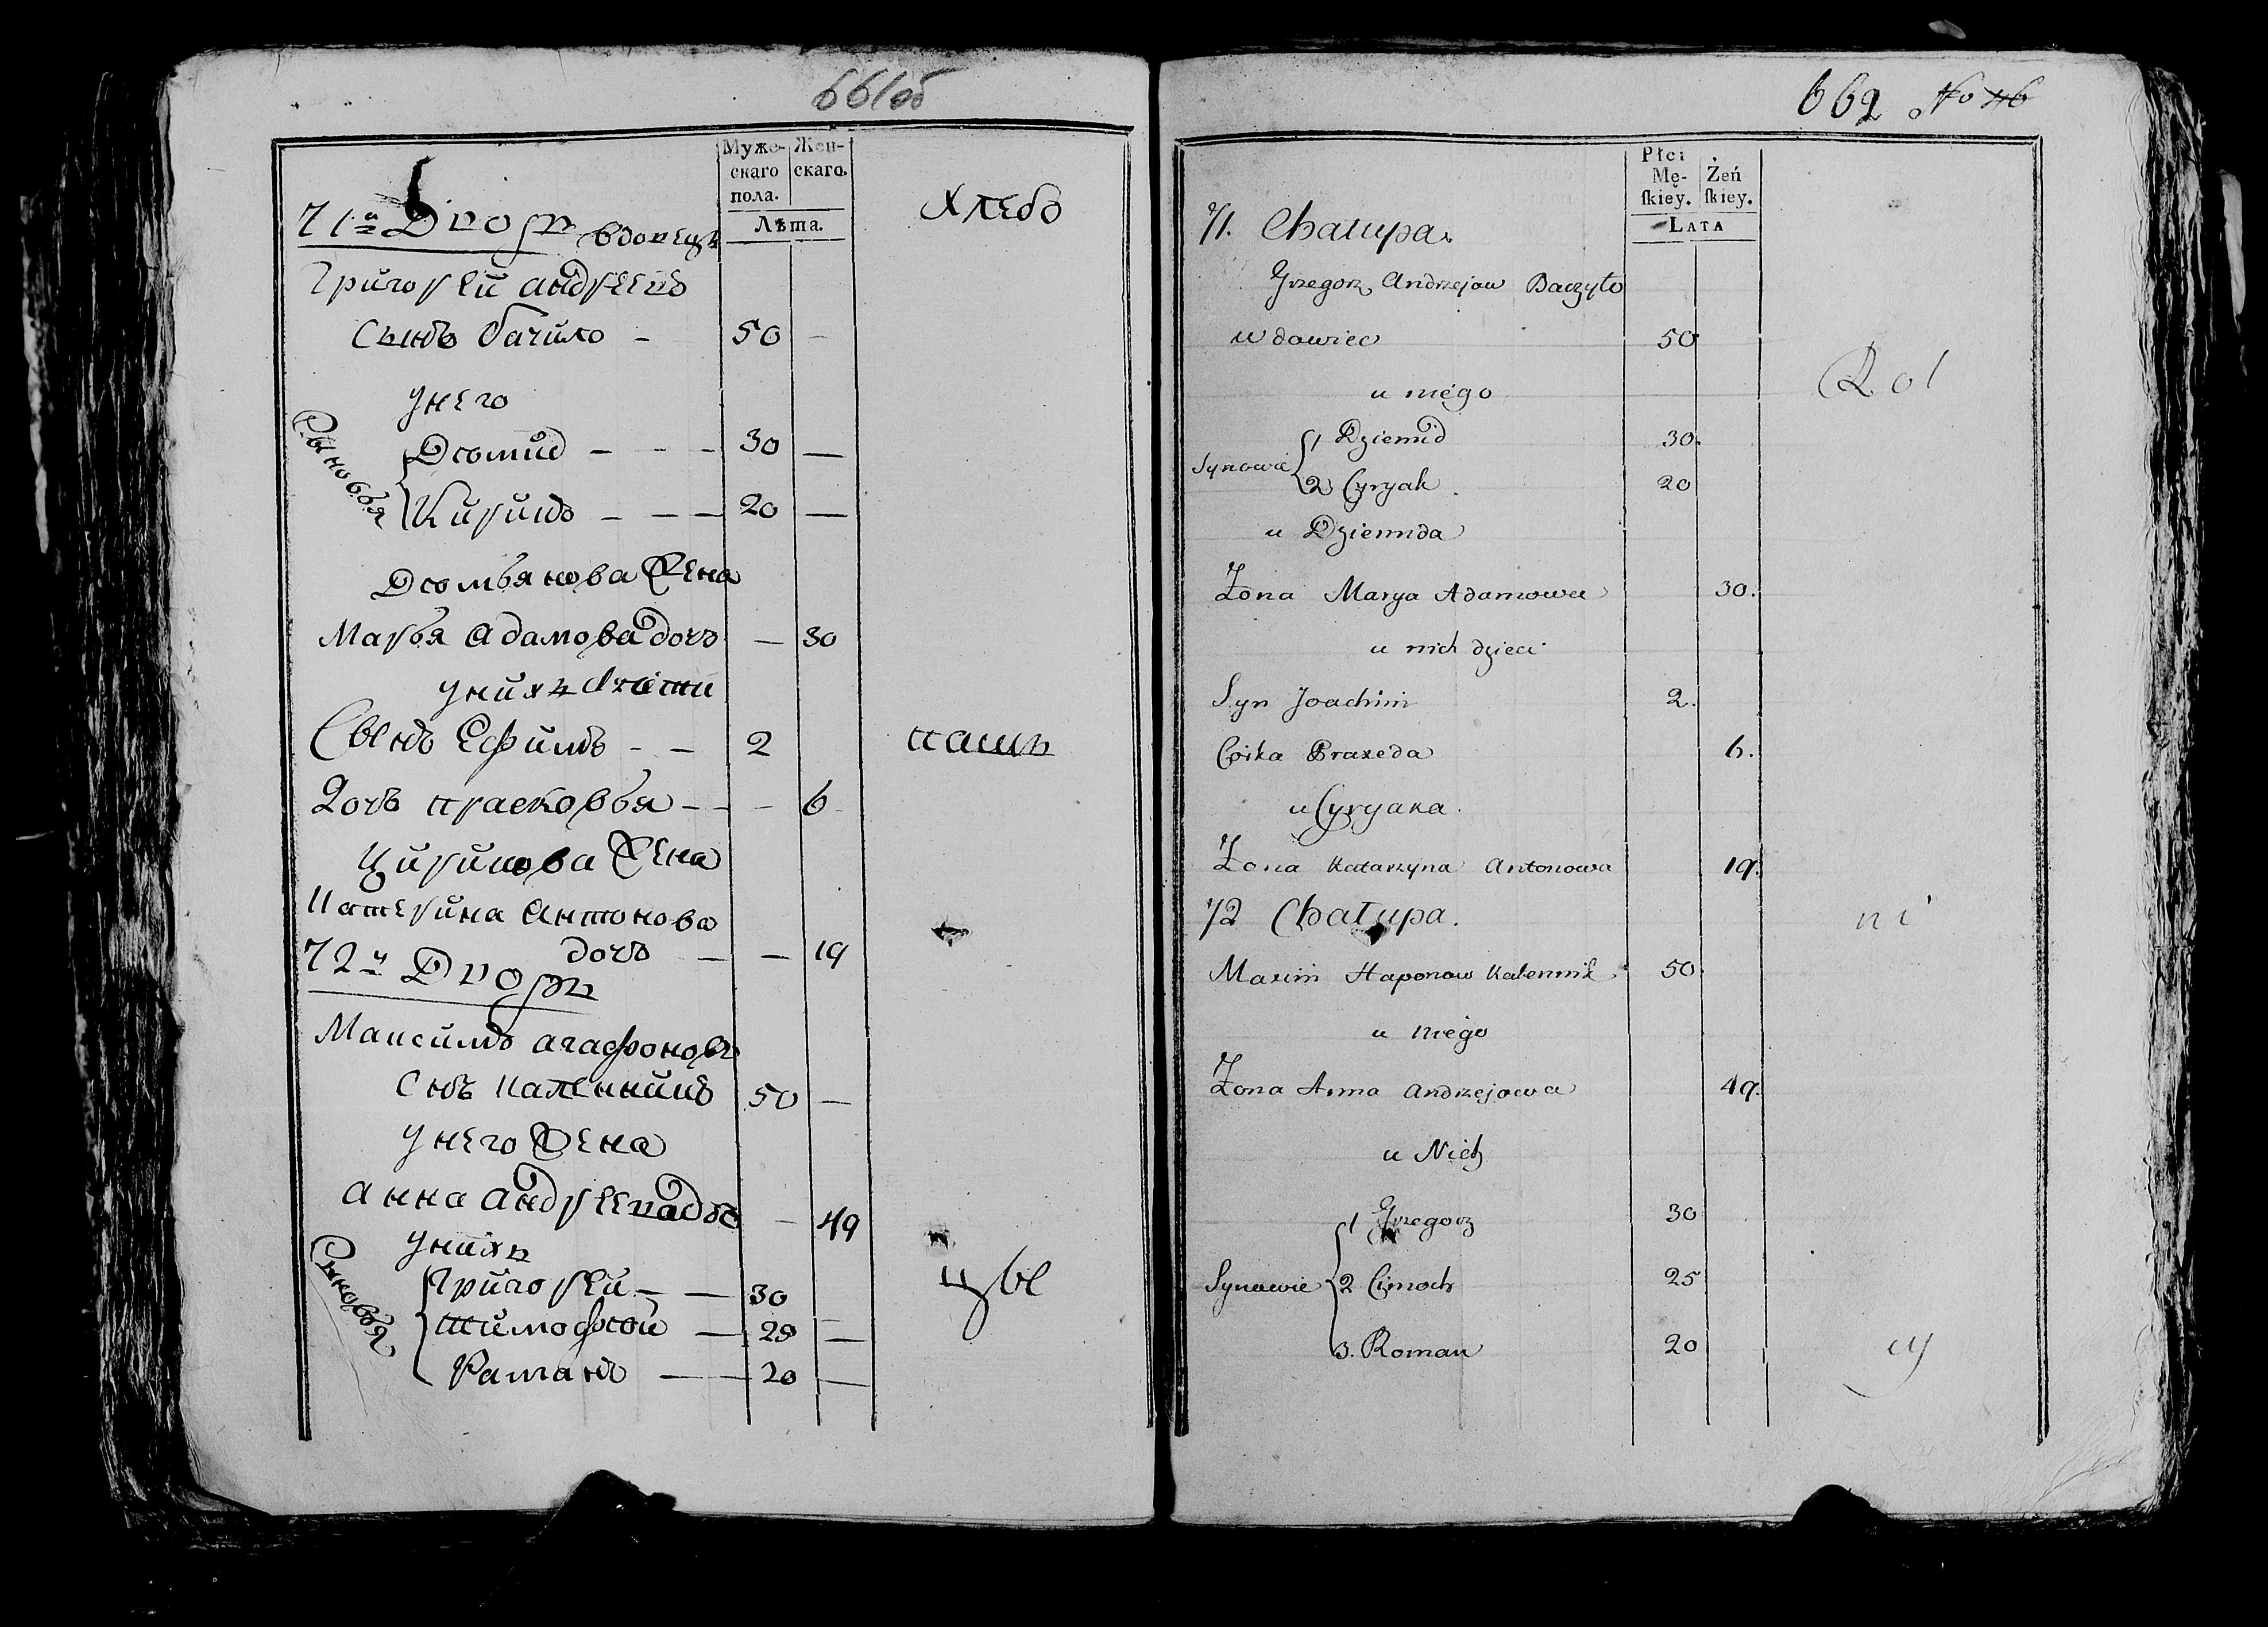 661об
Муже-
скаго
пола.
Жен-
скаго.
Лѣта.
71й Дворъ вдовецъ
Григорей андреевъ
Сынъ бачило - 50 -
у него
Сыновья
30 —
20 —
жена
Марья адамова дочь — 30
у нихъ дѣти
Сынъ Ефимъ - - 2
Дочь прасковья - - - 6
жена
Катерина Антонова
дочь — — 19
72й Дворъ
Максимъ агафоновъ
Снъ каленникъ 50 —
у него жена
анна андреева - 49
у нихъ
Сыновья
Григорей — — 30
тимофѣй — 25 —
Раманъ — — 20 —
Хлебо
паш
цы
662 No 46
Płci
Mę-
ſkiey.
Żeń
ſkiey.
LATA
71. Chałupa.
Grzegorz Andrzejow Baczyło
wdowiec 50
u niego
Synowie
1 Dziemid 30.
2 Cyryak 20
u Dziemida
Żona Marya Adamowa 30.
u nich dzieci
Syn Joachim 2.
Córka Praxeda 6.
u Cyryaka.
Żona Katarzyna Antonowa 19.
72 Chałupa.
Maxim Haponow Kalennik 50.
u niego
Żona Anna Andrzejowa 49.
u Nich
Synowie
1 Grzegorz 30
2 Cimoch 25
3. Roman 20
Rol
ni
cy